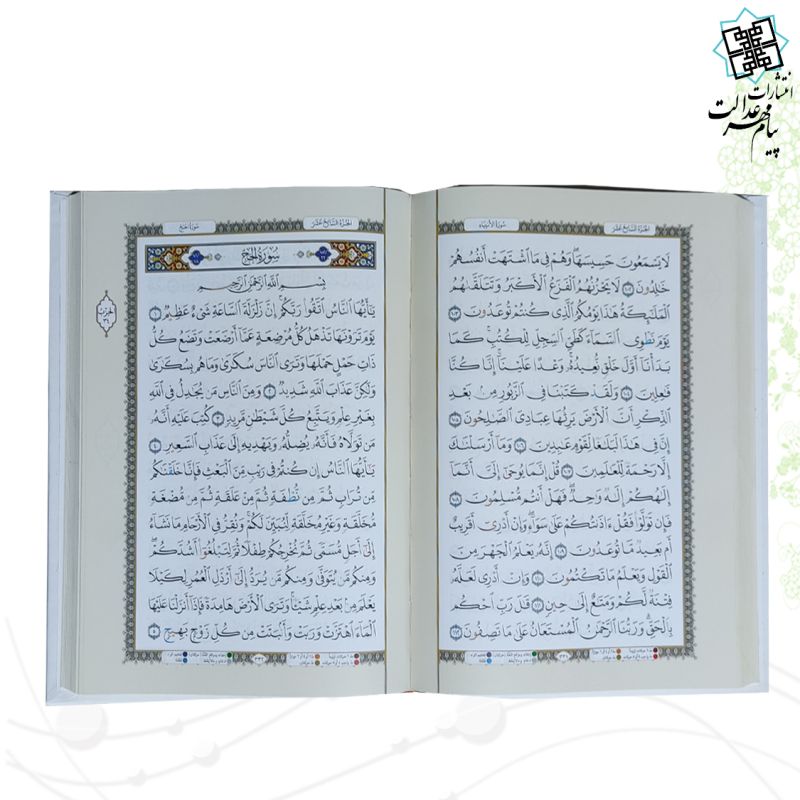 انتشارات
پیام مهر عدالت
الجزء السابع عشر
سورة الأنبياء
لَا يَسْمَعُونَ حَسِيسَهَا وَهُمْ فِي مَا اشْتَهَتْ أَنفُسُهُمْ
خَالِدُونَ ١٠٢ لَا يَحْزُنُهُمُ الْفَزَعُ الْأَكْبَرُ وَتَتَلَقَّاهُمُ
الْمَلَائِكَةُ هَذَا يَوْمُكُمُ الَّذِي كُنتُمْ تُوعَدُونَ ١٠٣
يَوْمَ نَطْوِي السَّمَاءَ كَطَيِّ السِّجِلِّ لِلْكُتُبِ كَمَا
بَدَأْنَا أَوَّلَ خَلْقٍ نُّعِيدُهُ وَعْدًا عَلَيْنَا إِنَّا كُنَّا
فَاعِلِينَ ١٠٤ وَلَقَدْ كَتَبْنَا فِي الزَّبُورِ مِن بَعْدِ
الذِّكْرِ أَنَّ الْأَرْضَ يَرِثُهَا عِبَادِيَ الصَّالِحُونَ ١٠٥
إِنَّ فِي هَذَا لَبَلَاغًا لِّقَوْمٍ عَابِدِينَ ١٠٦ وَمَا أَرْسَلْنَاكَ
إِلَّا رَحْمَةً لِّلْعَالَمِينَ ١٠٧ قُلْ إِنَّمَا يُوحَى إِلَيَّ أَنَّمَا
إِلَهُكُمْ إِلَهٌ وَاحِدٌ فَهَلْ أَنتُم مُّسْلِمُونَ ١٠٨
فَإِن تَوَلَّوْا فَقُلْ آذَنتُكُمْ عَلَى سَوَاءٍ وَإِنْ أَدْرِي أَقَرِيبٌ
أَم بَعِيدٌ مَّا تُوعَدُونَ ١٠٩ إِنَّهُ يَعْلَمُ الْجَهْرَ مِنَ
الْقَوْلِ وَيَعْلَمُ مَا تَكْتُمُونَ ١١٠ وَإِنْ أَدْرِي لَعَلَّهُ
فِتْنَةٌ لَّكُمْ وَمَتَاعٌ إِلَى حِينٍ ١١١ قَالَ رَبِّ احْكُم
بِالْحَقِّ وَرَبُّنَا الرَّحْمَنُ الْمُسْتَعَانُ عَلَى مَا تَصِفُونَ ١١٢
٣٣١
الجزء السابع عشر
سورة الحج
سُورَةُ الْحَجِّ
بِسْمِ اللَّهِ الرَّحْمَنِ الرَّحِيمِ
يَا أَيُّهَا النَّاسُ اتَّقُوا رَبَّكُمْ إِنَّ زَلْزَلَةَ السَّاعَةِ شَيْءٌ عَظِيمٌ ١
يَوْمَ تَرَوْنَهَا تَذْهَلُ كُلُّ مُرْضِعَةٍ عَمَّا أَرْضَعَتْ وَتَضَعُ كُلُّ
ذَاتِ حَمْلٍ حَمْلَهَا وَتَرَى النَّاسَ سُكَارَى وَمَا هُم بِسُكَارَى
وَلَكِنَّ عَذَابَ اللَّهِ شَدِيدٌ ٢ وَمِنَ النَّاسِ مَن يُجَادِلُ فِي اللَّهِ
بِغَيْرِ عِلْمٍ وَيَتَّبِعُ كُلَّ شَيْطَانٍ مَّرِيدٍ ٣ كُتِبَ عَلَيْهِ أَنَّهُ
مَن تَوَلَّاهُ فَأَنَّهُ يُضِلُّهُ وَيَهْدِيهِ إِلَى عَذَابِ السَّعِيرِ ٤
يَا أَيُّهَا النَّاسُ إِن كُنتُمْ فِي رَيْبٍ مِّنَ الْبَعْثِ فَإِنَّا خَلَقْنَاكُم
مِّن تُرَابٍ ثُمَّ مِن نُّطْفَةٍ ثُمَّ مِنْ عَلَقَةٍ ثُمَّ مِن مُّضْغَةٍ
مُّخَلَّقَةٍ وَغَيْرِ مُخَلَّقَةٍ لِّنُبَيِّنَ لَكُمْ وَنُقِرُّ فِي الْأَرْحَامِ مَا نَشَاءُ
إِلَى أَجَلٍ مُّسَمًّى ثُمَّ نُخْرِجُكُمْ طِفْلًا ثُمَّ لِتَبْلُغُوا أَشُدَّكُمْ
وَمِنكُم مَّن يُتَوَفَّى وَمِنكُم مَّن يُرَدُّ إِلَى أَرْذَلِ الْعُمُرِ لِكَيْلَا
يَعْلَمَ مِن بَعْدِ عِلْمٍ شَيْئًا وَتَرَى الْأَرْضَ هَامِدَةً فَإِذَا أَنزَلْنَا عَلَيْهَا
الْمَاءَ اهْتَزَّتْ وَرَبَتْ وَأَنبَتَتْ مِن كُلِّ زَوْجٍ بَهِيجٍ ٥
٣٣٢
الحزب
٣٤